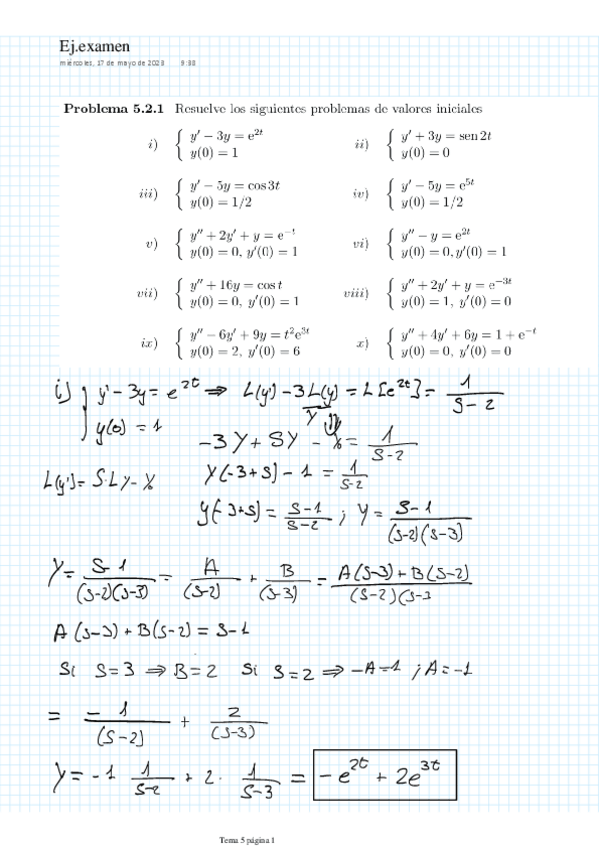 Ej.examen
miércoles, 17 de mayo de 2023 9:38
Problema 5.2.1 Resuelve los siguientes problemas de valores iniciales
i) { y′ − 3y = e^{2t} y(0) = 1
ii) { y′ + 3y = sen 2t y(0) = 0
iii) { y′ − 5y = cos 3t y(0) = 1/2
iv) { y′ − 5y = e^{5t} y(0) = 1/2
v) { y″ + 2y′ + y = e^{−t} y(0) = 0, y′(0) = 1
vi) { y″ − y = e^{2t} y(0) = 0, y′(0) = 1
vii) { y″ + 16y = cos t y(0) = 0, y′(0) = 1
viii) { y″ + 2y′ + y = e^{−3t} y(0) = 1, y′(0) = 0
ix) { y″ − 6y′ + 9y = t²e^{3t} y(0) = 2, y′(0) = 6
x) { y″ + 4y′ + 6y = 1 + e^{−t} y(0) = 0, y′(0) = 0
i) } y′-3y = e^{2t} ⇒ L(y′) - 3L(y) = L[e^{2t}] = 1/(s-2)
y(0) = 1
Y
-3Y + SY - y₀ = 1/(s-2)
L(y′) = S·Ly - y₀
Y(-3+s) - 1 = 1/(s-2)
Y(-3+s) = (s-1)/(s-2) ; Y = (s-1)/((s-2)(s-3))
Y = (s-1)/((s-2)(s-3)) = A/(s-2) + B/(s-3) = (A(s-3)+B(s-2))/((s-2)(s-3
A(s-3) + B(s-2) = s-1
Si s=3 ⇒ B=2 Si s=2 ⇒ -A=1 ; A=-1
= -1/(s-2) + 2/(s-3)
Y = -1 1/(s-2) + 2· 1/(s-3) = -e^{2t} + 2e^{3t}
Tema 5 página 1